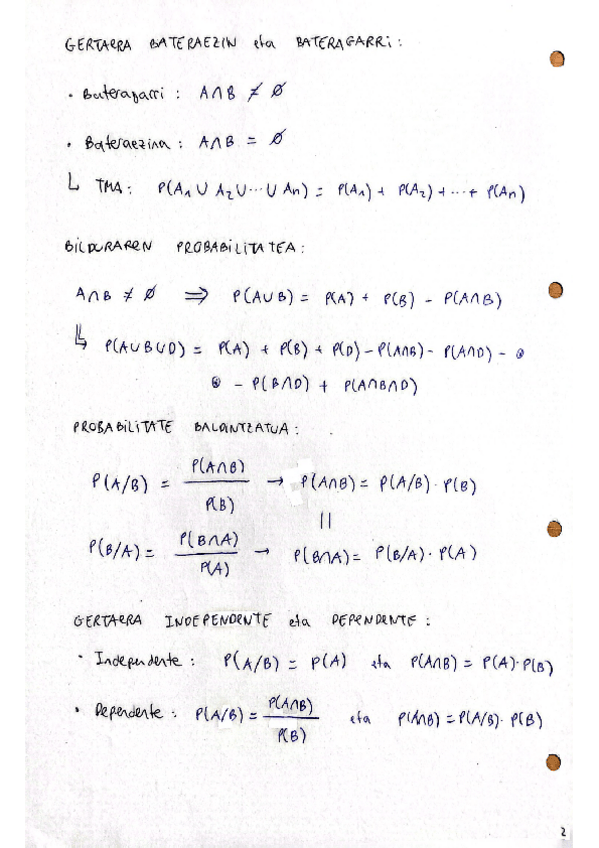 GERTAERA BATERAEZIN eta BATERAGARRI :
· Bateragarri : A∩B ≠ ∅
· Bateraezina : A∩B = ∅
↳ TMA: P(A₁ ∪ A₂ ∪ ⋯ ∪ An) = P(A₁) + P(A₂) + ⋯ + P(An)
BILDURAREN PROBABILITATEA :
A∩B ≠ ∅ ⇒ P(A∪B) = P(A) + P(B) - P(A∩B)
↳ P(A∪B∪D) = P(A) + P(B) + P(D) - P(A∩B) - P(A∩D) - ⊗
⊗ - P(B∩D) + P(A∩B∩D)
PROBABILITATE BALDINTZATUA :
P(A/B) = P(A∩B) / P(B) → P(A∩B) = P(A/B) · P(B)
||
P(B/A) = P(B∩A) / P(A) → P(B∩A) = P(B/A) · P(A)
GERTAERA INDEPENDENTE eta DEPENDENTE :
· Independente : P(A/B) = P(A) eta P(A∩B) = P(A)·P(B)
· Dependente : P(A/B) = P(A∩B) / P(B) eta P(A∩B) = P(A/B) · P(B)
2